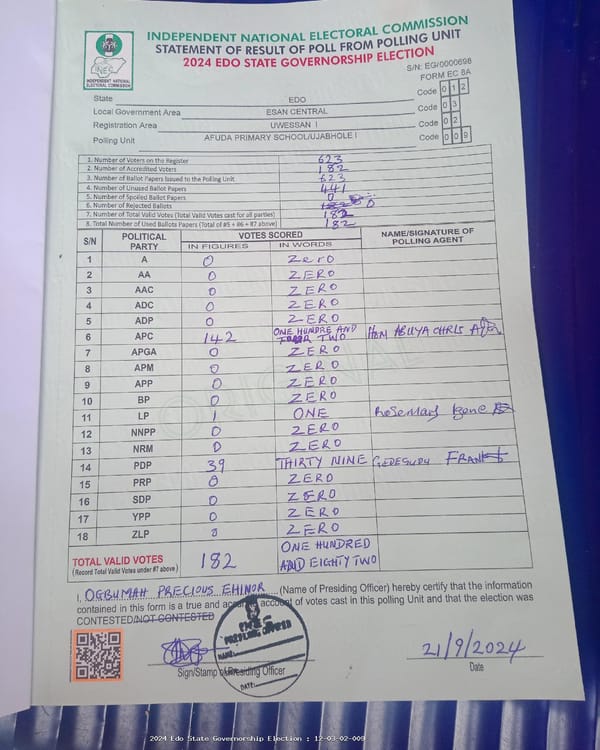 INDEPENDENT NATIONAL ELECTORAL COMMISSION
STATEMENT OF RESULT OF POLL FROM POLLING UNIT
2024 EDO STATE GOVERNORSHIP ELECTION
INEC
INDEPENDENT NATIONAL ELECTORAL COMMISSION
S/N: EG/0000698
FORM EC 8A
State EDO Code 0 1 2
Local Government Area ESAN CENTRAL Code 0 3
Registration Area UWESSAN I Code 0 2
Polling Unit AFUDA PRIMARY SCHOOL/UJABHOLE I Code 0 0 9
1. Number of Voters on the Register 623
2. Number of Accredited Voters 182
3. Number of Ballot Papers Issued to the Polling Unit 623
4. Number of Unused Ballot Papers 441
5. Number of Spoiled Ballot Papers 0
6. Number of Rejected Ballots 0
7. Number of Total Valid Votes (Total Valid Votes cast for all parties) 182
8. Total Number of Used Ballots Papers (Total of #5 + #6 + #7 above) 182
S/N POLITICAL PARTY VOTES SCORED NAME/SIGNATURE OF POLLING AGENT
IN FIGURES IN WORDS
1 A 0 Zero
2 AA 0 ZERO
3 AAC 0 ZERO
4 ADC 0 ZERO
5 ADP 0 ZERO
6 APC 142 ONE HUNDRE AND TWO HON ABUYA CHRIS
7 APGA 0 ZERO
8 APM 0 ZERO
9 APP 0 ZERO
10 BP 0 ZERO
11 LP 1 ONE Rosemary
12 NNPP 0 ZERO
13 NRM 0 ZERO
14 PDP 39 THIRTY NINE FRANK
15 PRP 0 ZERO
16 SDP 0 ZERO
17 YPP 0 ZERO
18 ZLP 0 ZERO
TOTAL VALID VOTES 182 ONE HUNDRED AND EIGHTY TWO
(Record Total Valid Votes under #7 above)
ORIGINAL
I, OGBUMAH PRECIOUS EHINOR (Name of Presiding Officer) hereby certify that the information
contained in this form is a true and account of votes cast in this polling Unit and that the election was
CONTESTED/NOT CONTESTED
INEC
PRESIDING OFFICER
NAME:
DATE:
21/9/2024
Sign/Stamp of Presiding Officer Date
2024 Edo State Governorship Election : 12-03-02-009